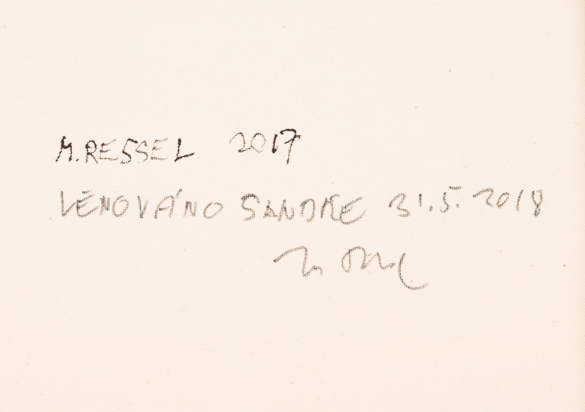 M. RESSEL 2017
VĚNOVÁNO SANDŘE 31.5.2018